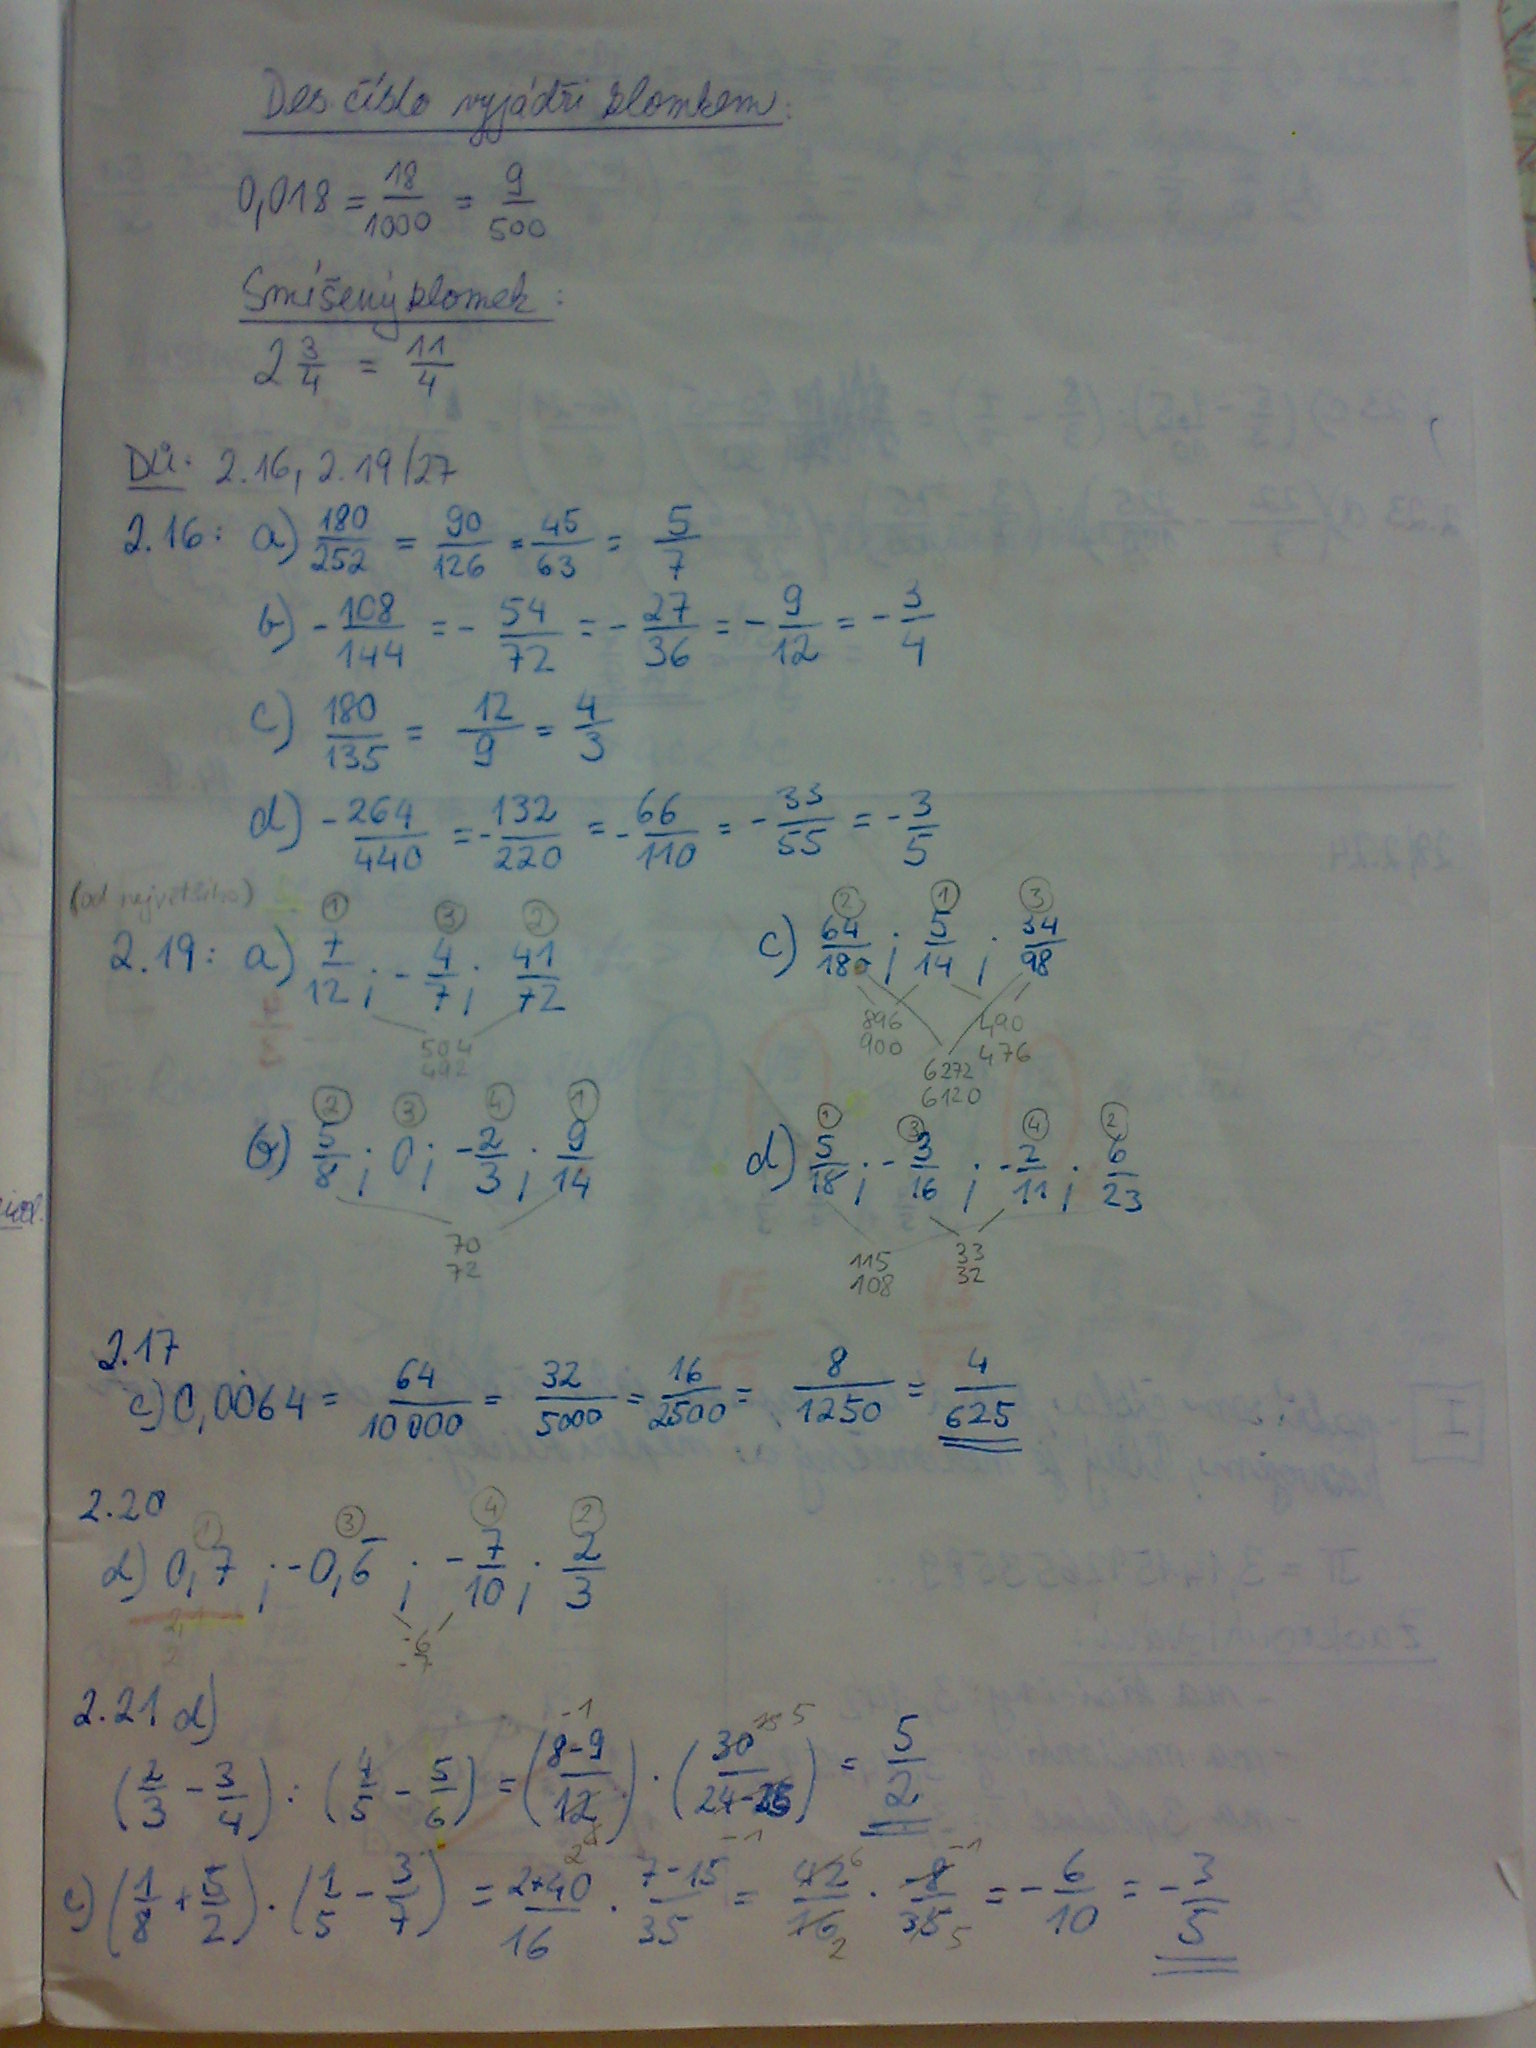 Des číslo vyjádři zlomkem:
0,018 = 18/1000 = 9/500
Smíšený zlomek:
2 3/4 = 11/4
DÚ: 2.16, 2.19/27
2.16: a) 180/252 = 90/126 = 45/63 = 5/7
b) - 108/144 = - 54/72 = - 27/36 = - 9/12 = - 3/4
c) 180/135 = 12/9 = 4/3
d) - 264/440 = - 132/220 = - 66/110 = - 33/55 = - 3/5
(od největšího)
① ③ ②
2.19: a) 7/12 ; - 4/7 ; 41/72
504
492
② ③ ④ ①
b) 5/8 ; 0 ; - 2/3 ; 9/14
70
72
② ① ③
c) 64/180 ; 5/14 ; 34/98
896 490
900 476
6272
6120
① ③ ④ ②
d) 5/18 ; - 3/16 ; - 2/11 ; 6/23
115 33
108 32
2.17
c) 0,0064 = 64/10000 = 32/5000 = 16/2500 = 8/1250 = 4/625
2.20
① ③ ④ ②
d) 0,7 ; -0,6̅ ; - 7/10 ; 2/3
-6
-7
2.21 d)
(2/3 - 3/4) : (4/5 - 5/6) = (8-9/12) · (30/24-25) = 5/2
c) (1/8 + 5/2) · (1/5 - 3/7) = 2+40/16 · 7-15/35 = 42/16 · -8/35 = - 6/10 = - 3/5